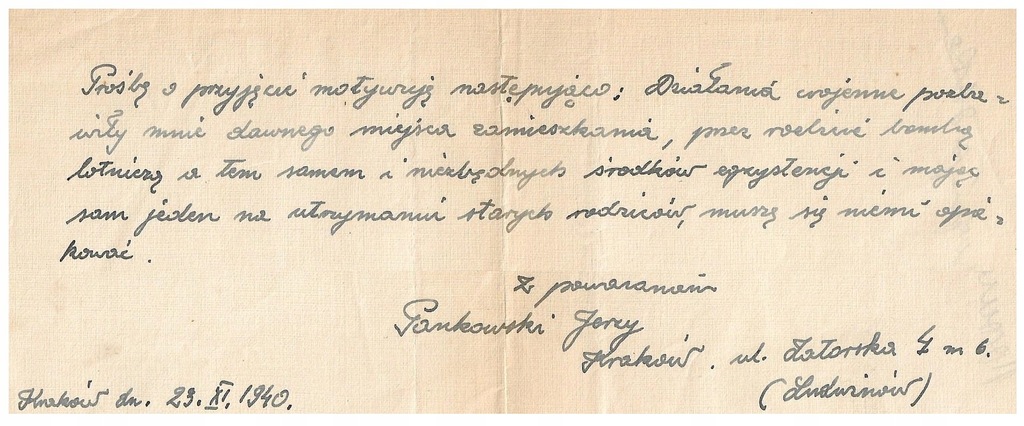 Prośbę o przyjęcie motywuję następująco: Działania wojenne pozba-
wiły mnie dawnego miejsca zamieszkania, przez rozbicie bombą
lotniczą a tem samem i niezbędnych środków egzystencji i mając
sam jeden na utrzymaniu starych rodziców, muszę się niemi opie-
kować.
Z poważaniem
Pankowski Jerzy
Kraków. ul. Zatorska 4 m 6.
(Ludwinów)
Kraków dn. 23. XI. 1940.